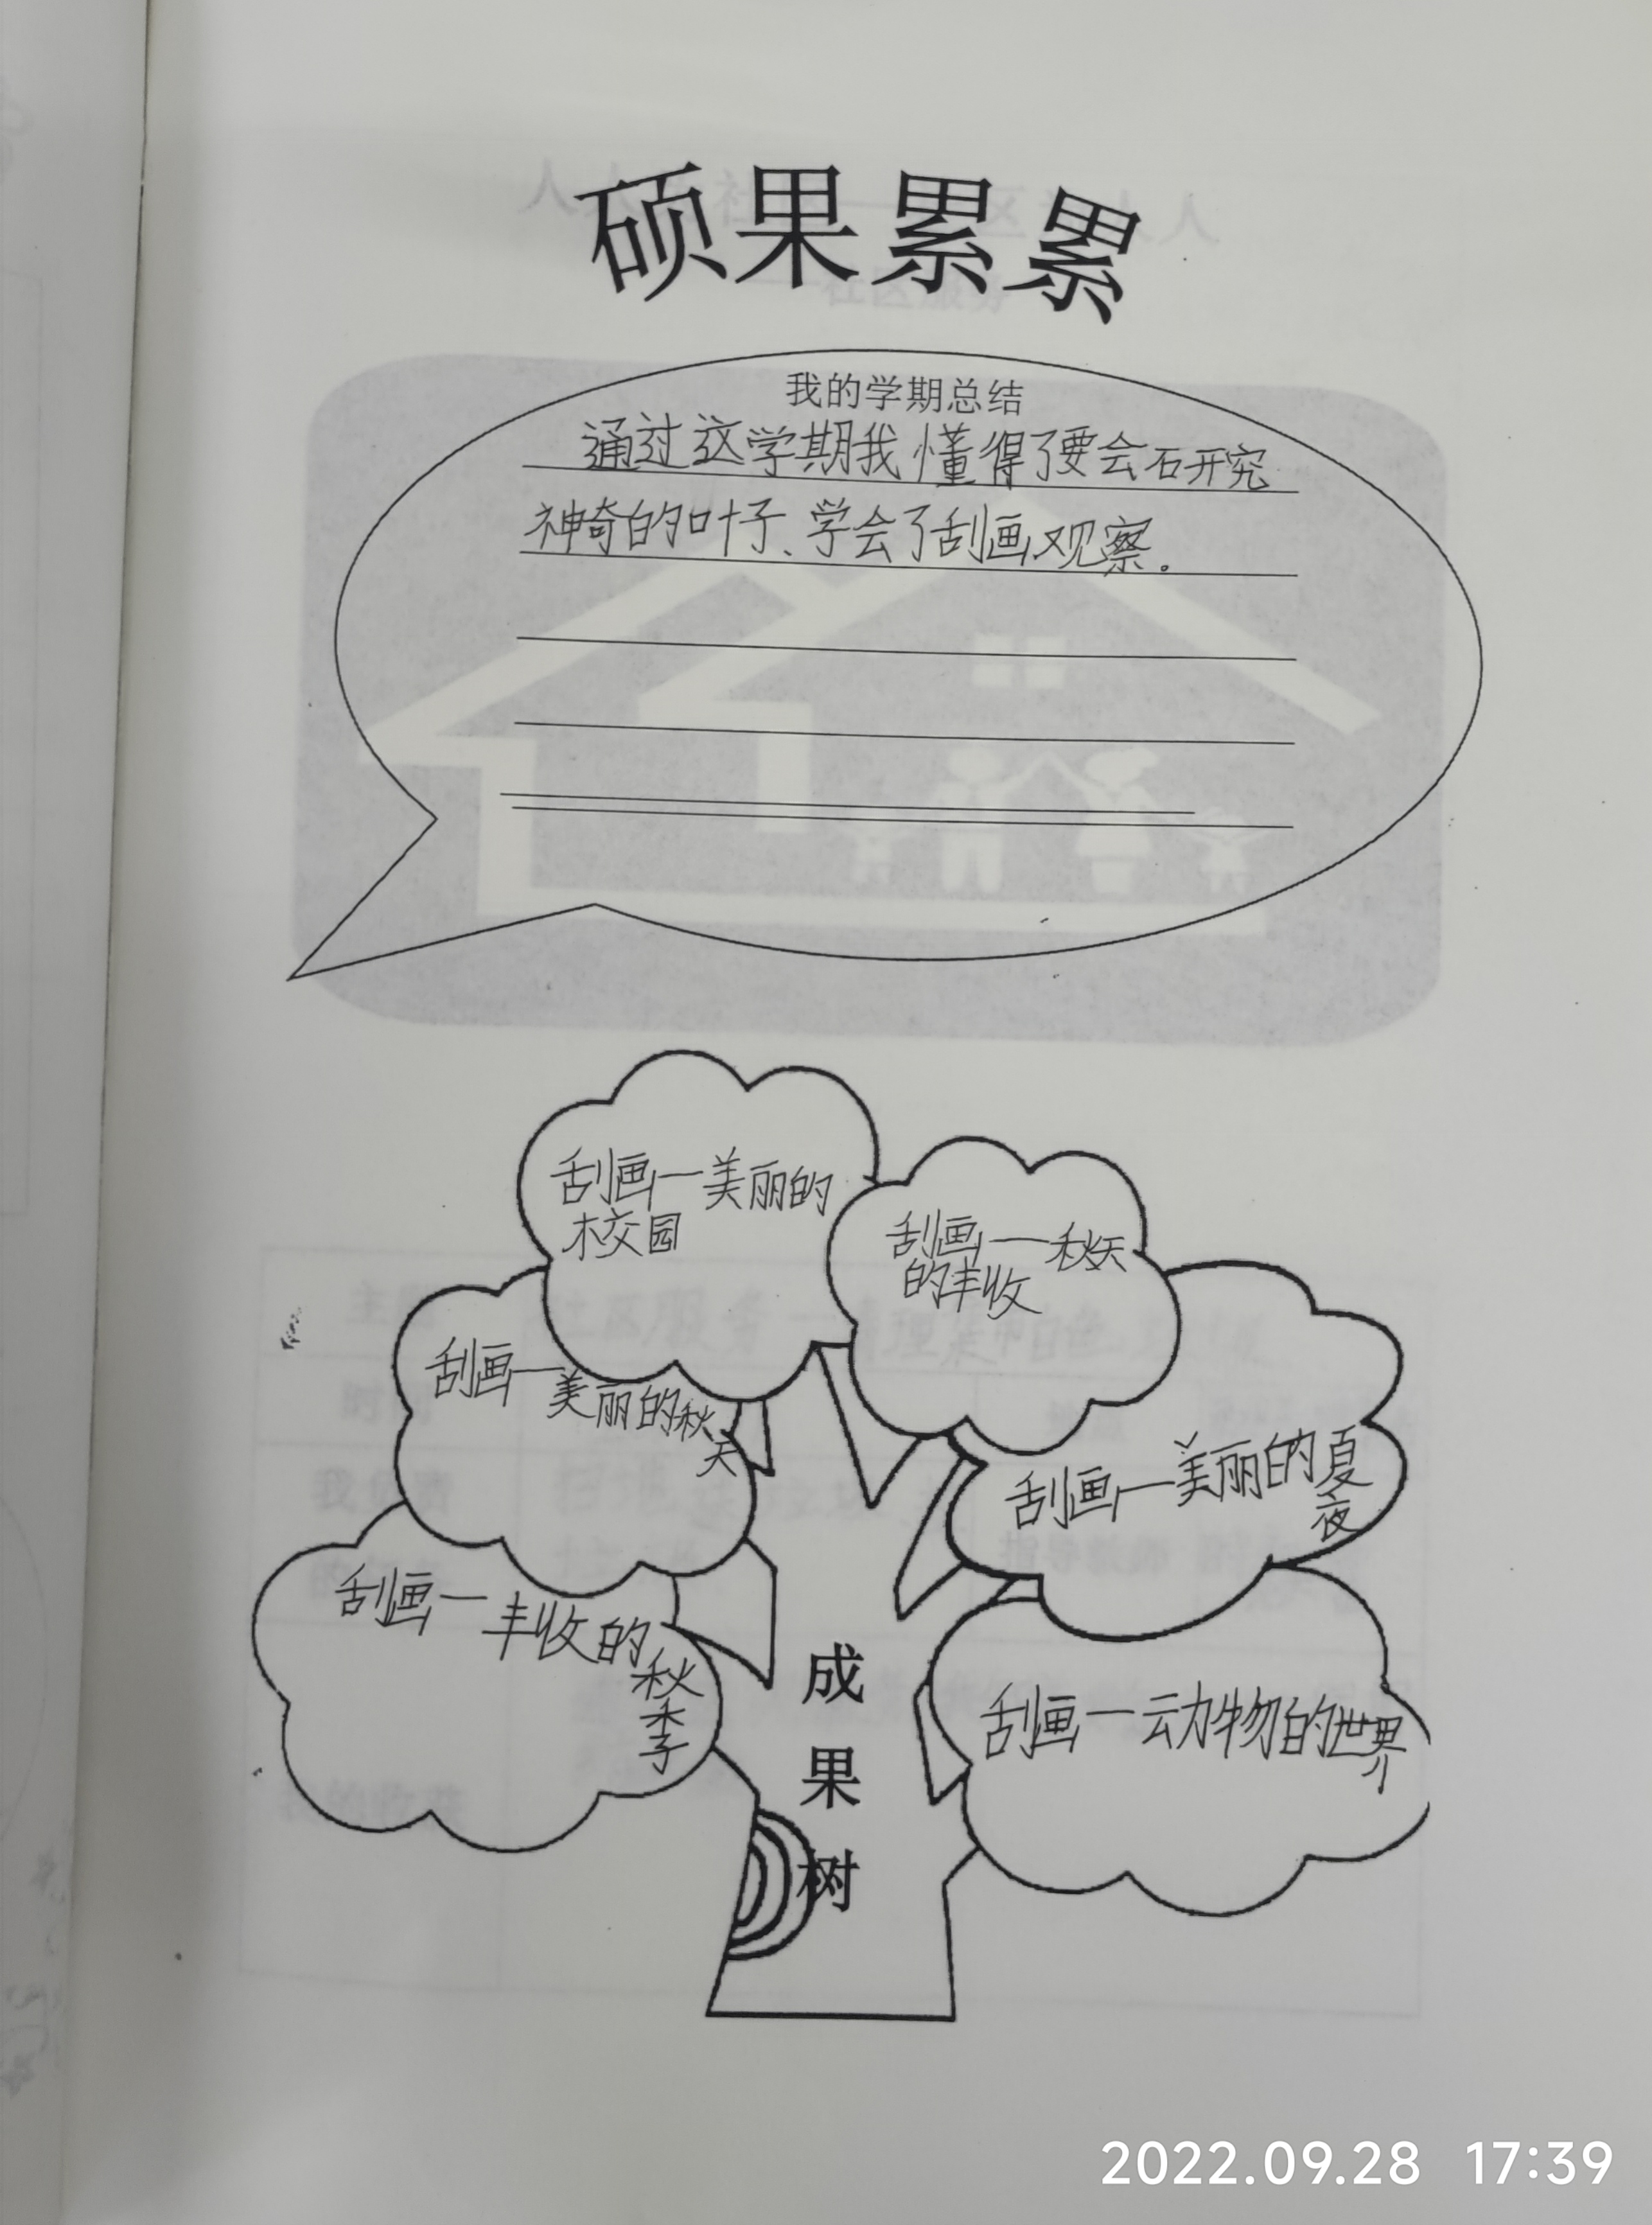 硕果累累
我的学期总结
通过这学期我懂得了要会研究
神奇的叶子、学会了刮画观察。
刮画一美丽的
校园
刮画一秋天
的丰收
刮画一美丽的秋
天
刮画一美丽的夏
夜
刮画一丰收的
秋
季
刮画一动物的世界
成
果
树
2022.09.28 17:39